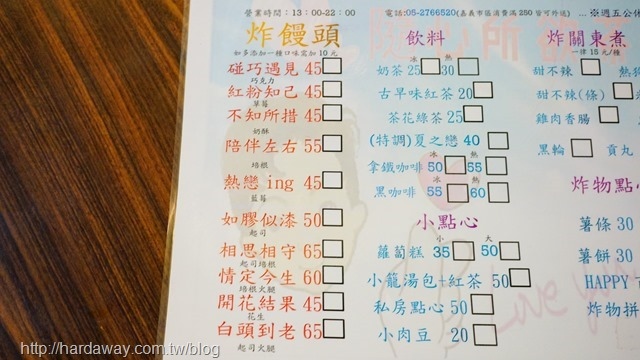 營業時間：13：00-22：00
電話:05-2766520(嘉義市區消費滿 280 皆可外送)
...※週五公休
炸饅頭
如多添加一種口味需加 10 元
碰巧遇見 45
巧克力
紅粉知己 45
草莓
不知所措 45
奶酥
陪伴左右 55
培根
熱戀 ing 45
藍莓
如膠似漆 50
起司
相思相守 65
起司培根
情定今生 60
培根火腿
開花結果 45
花生
白頭到老 65
起司火腿
飲料
冰 熱
奶茶 25 30
古早味紅茶 20
茶花綠茶 25
(特調)夏之戀 40
冰 熱
拿鐵咖啡 50 55
冰 熱
黑咖啡 55 60
小點心
小 大
蘿蔔糕 35 50
小籠湯包+紅茶 50
私房點心 50
小肉豆 20
炸關東煮
一律 15 元/種
甜不辣 熱狗
甜不辣(條)
雞肉香腸
黑輪 貢丸
炸物點心
薯條 30
薯餅 30
HAPPY
炸物拼
Love you
http://hardaway.com.tw/blog